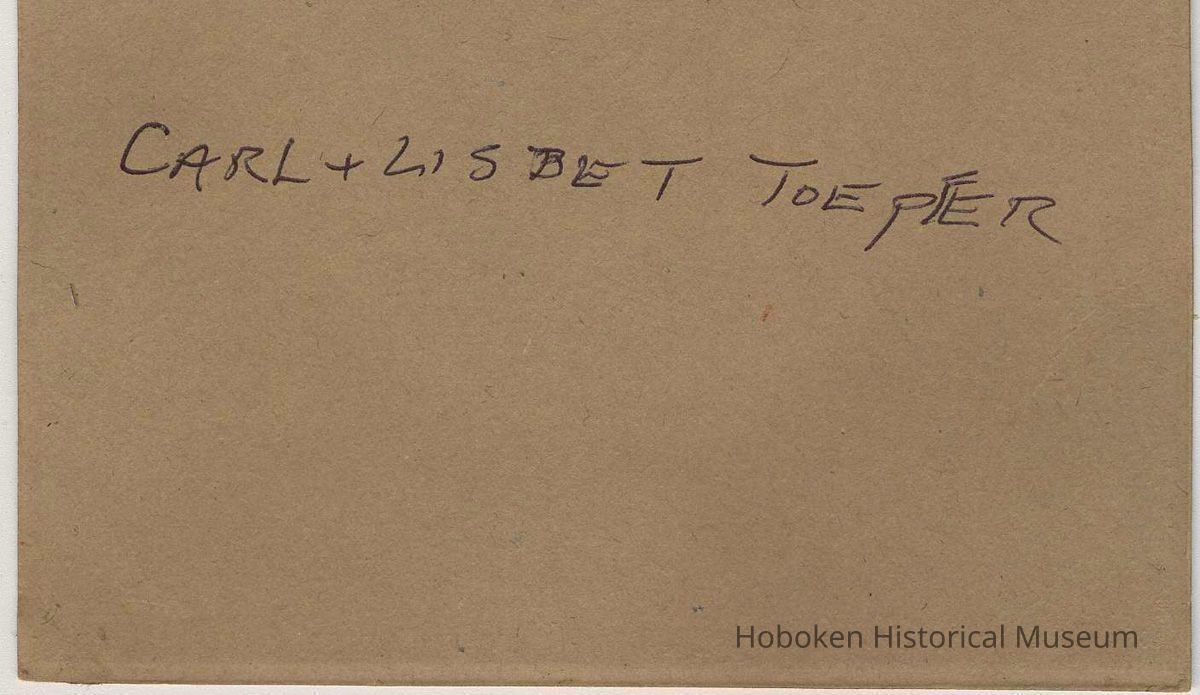 CARL + LISBET TOEPFER
Hoboken Historical Museum